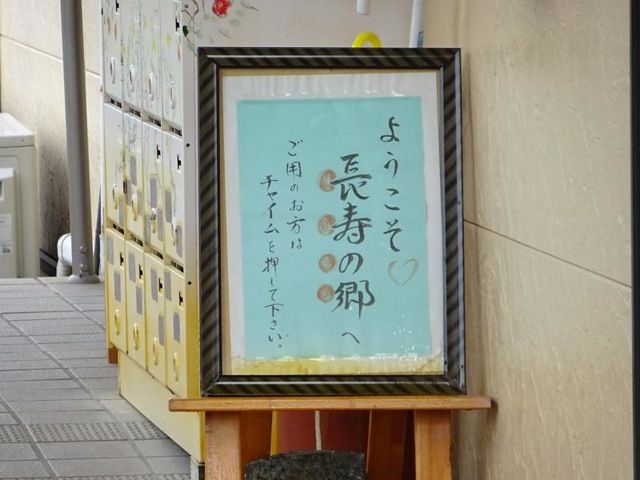 ようこそ♡
長寿の郷へ
ご用のお方は
チャイムを押して下さい。